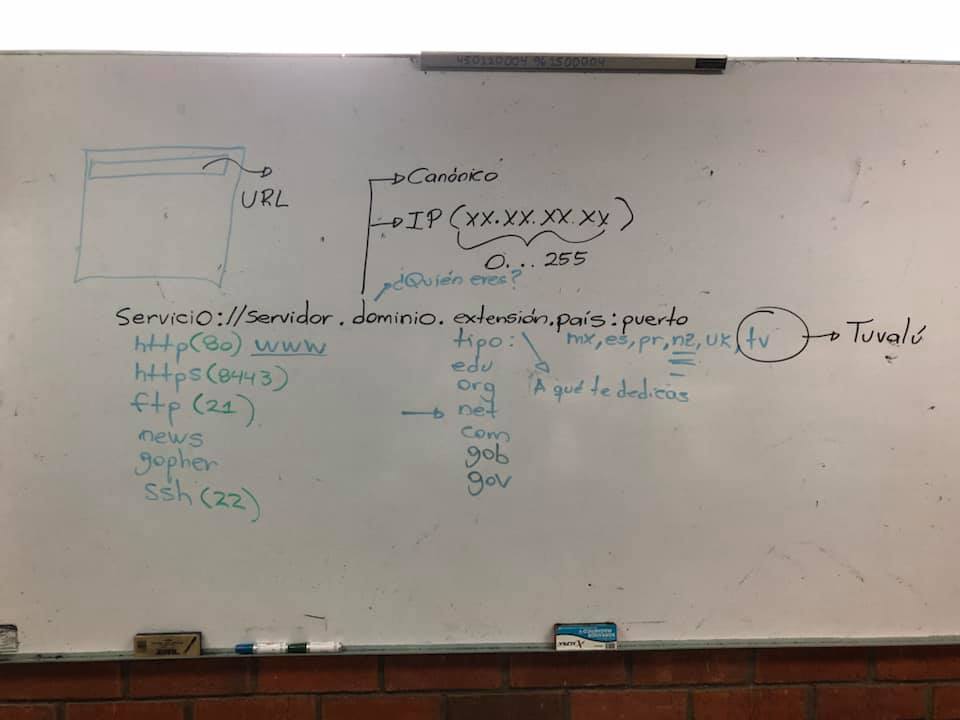 450120004 961500004
URL
Canónico
IP (XX.XX.XX.XX)
0...255
¿Quién eres?
Servicio://Servidor.dominio.extensión.país:puerto
http(80) www
https(8443)
ftp(21)
news
gopher
ssh(22)
tipo:
edu
org
net
com
gob
gov
A qué te dedicas
mx, es, pr, nz, uk, tv
Tuvalú